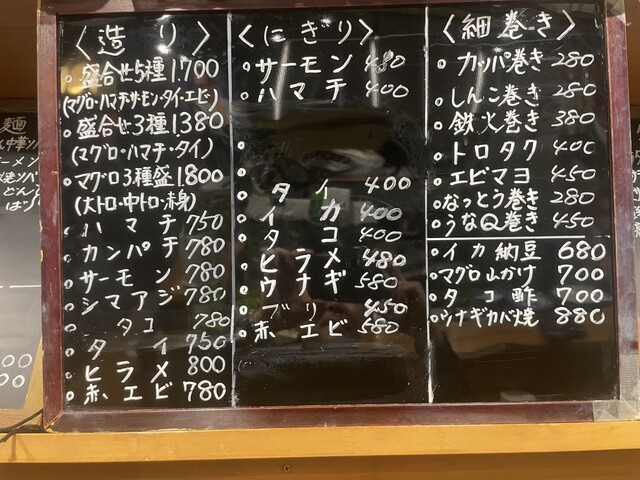 〈造り〉
○盛合せ5種1.700
(マグロ・ハマチ・サーモン・タイ・エビ)
○盛合せ3種1.380
(マグロ・ハマチ・タイ)
○マグロ3種盛1800
(大トロ・中トロ・赤身)
○ハマチ750
○カンパチ780
○サーモン780
○シマアジ780
○タコ780
○タイ750
○ヒラメ800
○赤エビ780
〈にぎり〉
○サーモン480
○ハマチ400
○タイ400
○イカ400
○タコ400
○ヒラメ480
○ウナギ580
○ブリ450
○赤エビ580
〈細巻き〉
○カッパ巻き280
○しんこ巻き280
○鉄火巻き380
○トロタク400
○エビマヨ450
○なっとう巻き280
○うなQ巻き450
○イカ納豆680
○マグロ山かけ700
○タコ酢700
○ウナギカバ焼880
麺